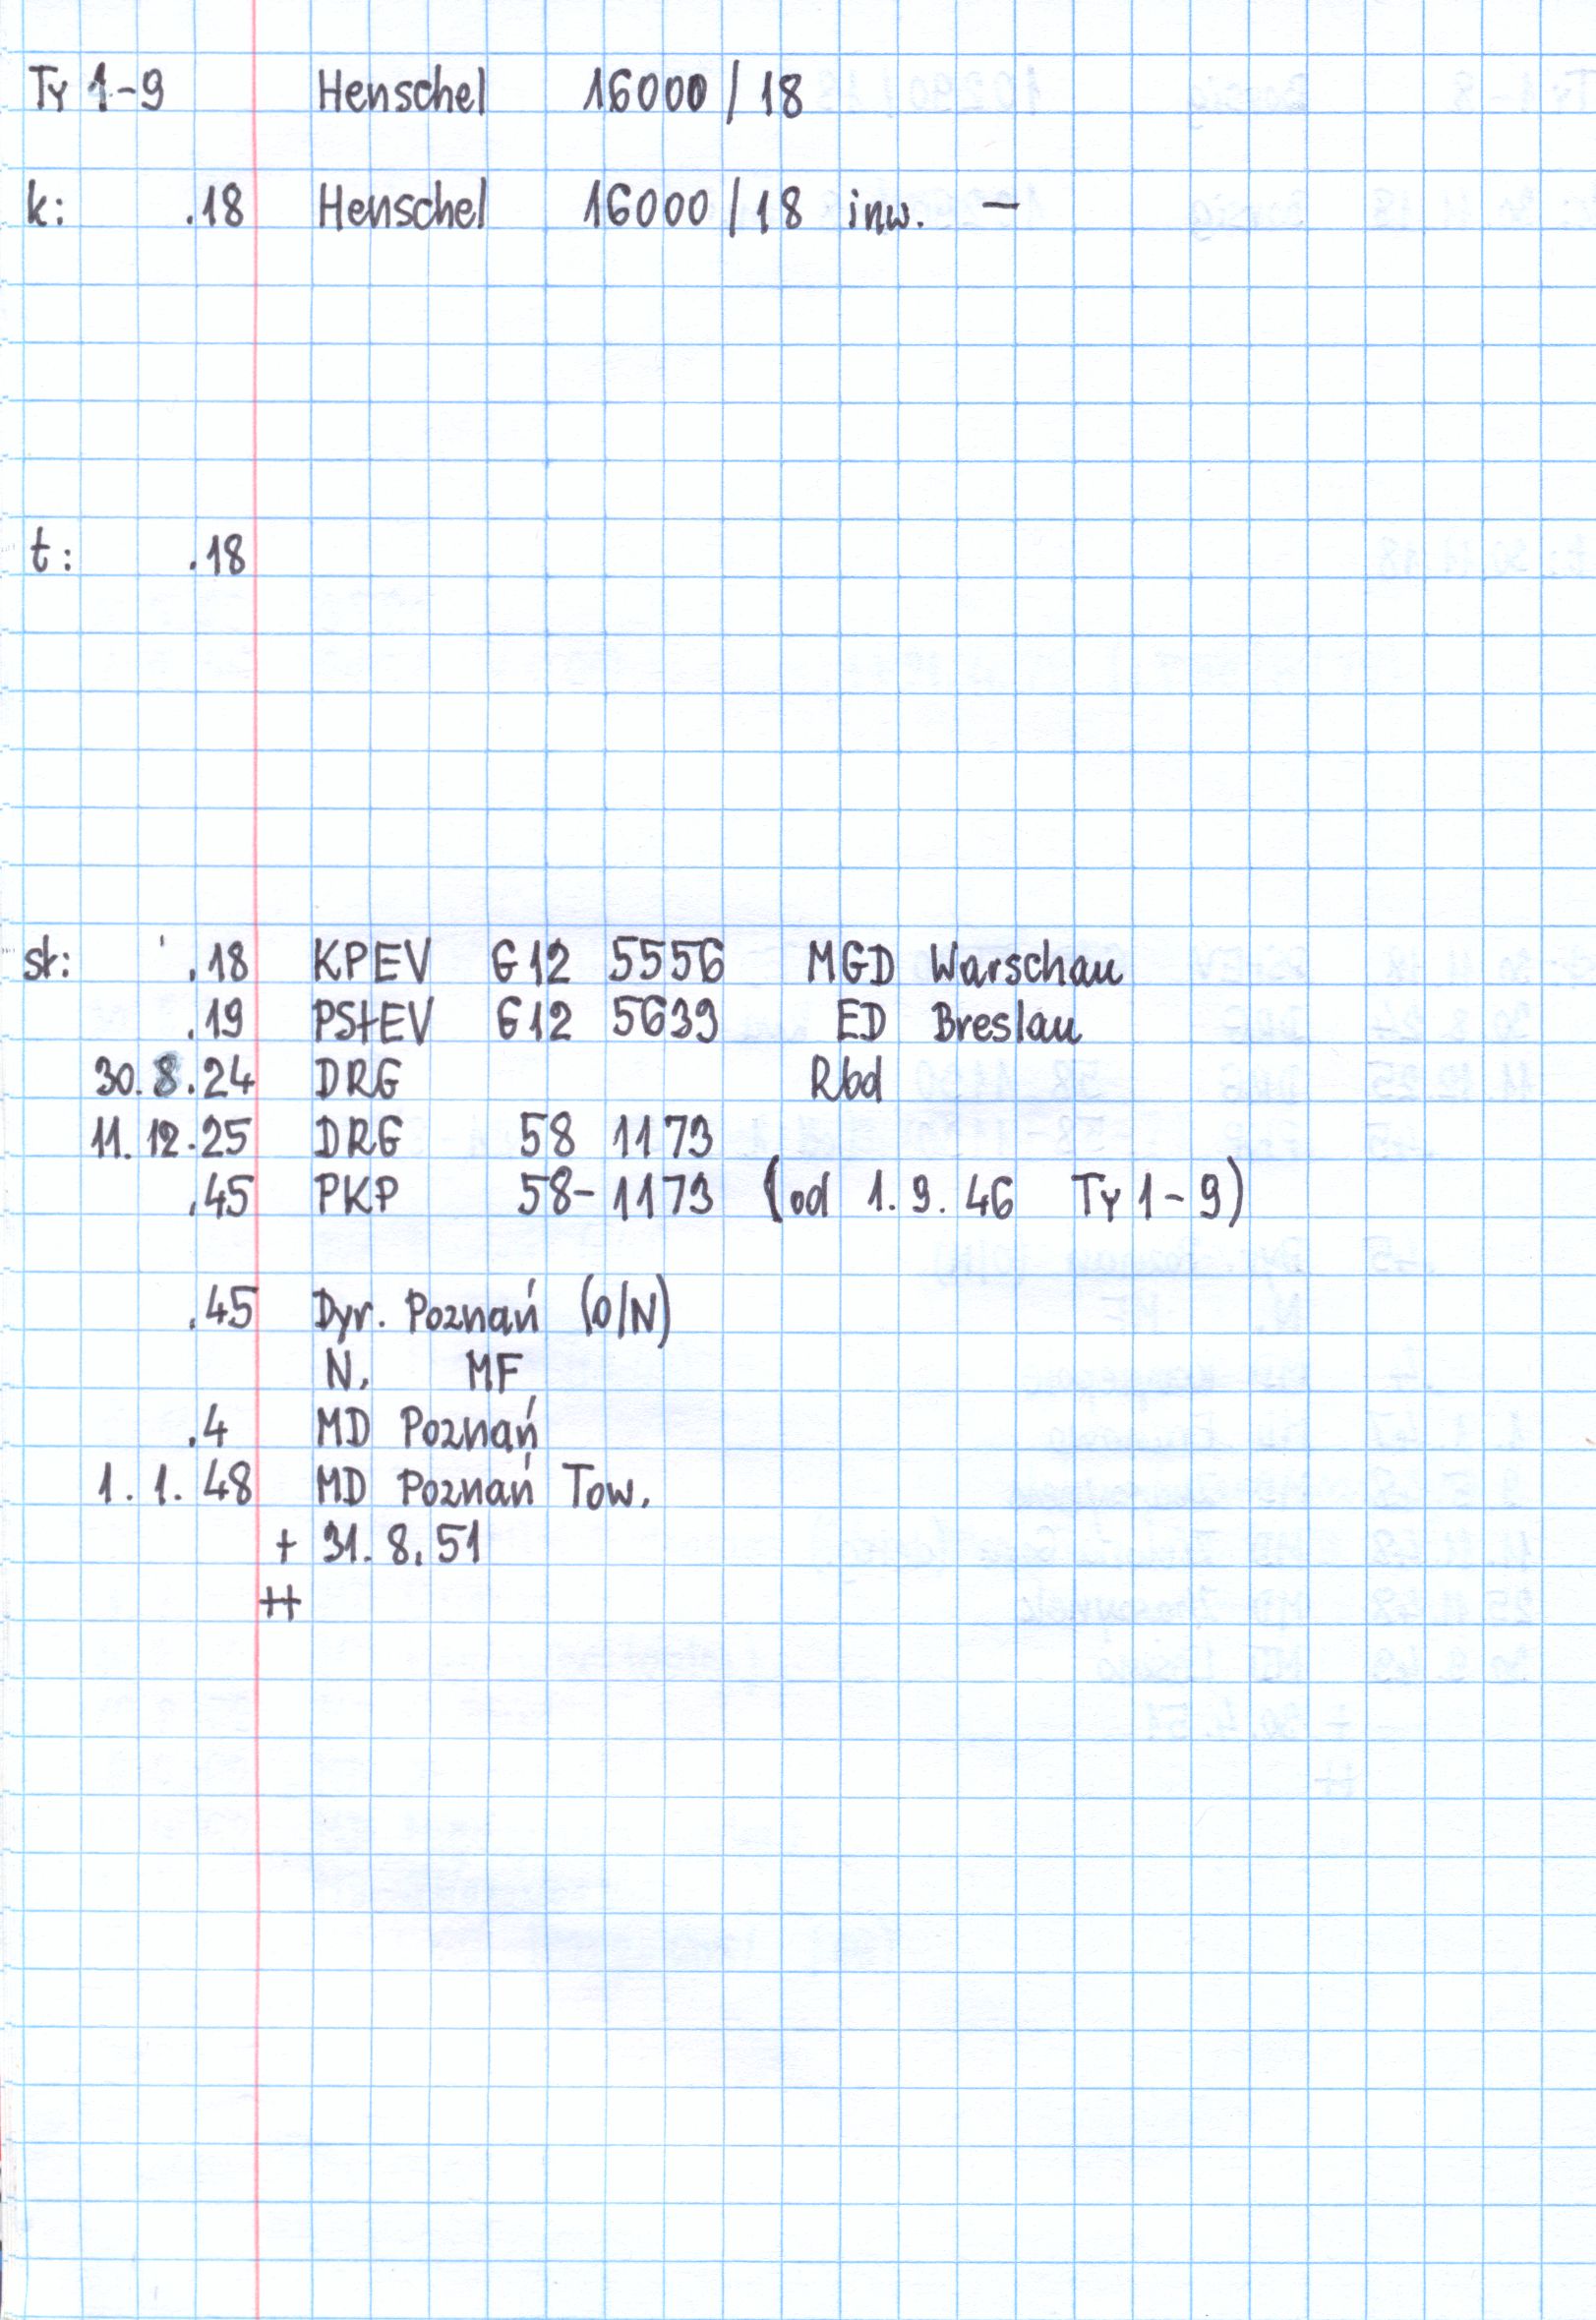 Ty 1-9 Henschel 16000/18
k: .18 Henschel 16000/18 inw. –
t: .18
st: .18 KPEV G12 5556 MGD Warschau
.19 PStEV G12 5639 ED Breslau
30.8.24 DRG Rbd
11.12.25 DRG 58 1173
.45 PKP 58-1173 (od 1.9.46 Ty 1-9)
.45 Dyr. Poznań (O/N)
N. MF
.4 MD Poznań
1.1.48 MD Poznań Tow.
+ 31.8.51
++